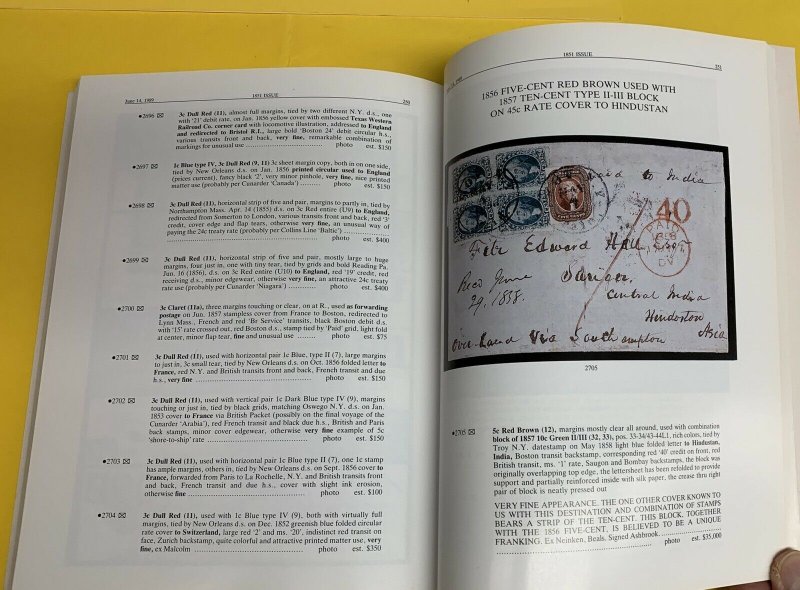 June 14, 1989
1851 ISSUE
250
•2696 ✉ 3c Dull Red (11), almost full margins, tied by two different N.Y. d.s., one
with '21' debit rate, on Jan. 1856 yellow cover with embossed Texas Western
Railroad Co. corner card with locomotive illustration, addressed to England
and redirected to Bristol R.I., large bold 'Boston 24' debit circular h.s.,
various transits front and back, very fine, remarkable combination of
markings for unusual use photo est. $150
•2697 ✉ 1c Blue type IV, 3c Dull Red (9, 11) 3c sheet margin copy, both in on one side,
tied by New Orleans d.s. on Jan. 1856 printed circular used to England
(prices current), fancy black '2', very minor pinhole, very fine, nice printed
matter use (probably per Cunarder 'Canada') photo est. $150
•2698 ✉ 3c Dull Red (11), horizontal strip of five and pair, margins to partly in, tied by
Northampton Mass. Apr. 14 (1855) d.s. on 3c Red entire (U9) to England,
redirected from Somerton to London, various transits front and back, red '3'
credit, cover edge and flap tears, otherwise very fine, an unusual way of
paying the 24c treaty rate (probably per Collins Line 'Baltic')
photo est. $400
•2699 ✉ 3c Dull Red (11), horizontal strip of five and pair, mostly large to huge
margins, four just in, one with tiny tear, tied by grids and bold Reading Pa.
Jan. 16 (1856), d.s. on 3c Red entire (U10) to England, red '19' credit, red
receiving d.s., minor edgewear, otherwise very fine, an attractive 24c treaty
rate use (probably per Cunarder 'Niagara') photo est. $400
•2700 ✉ 3c Claret (11a), three margins touching or clear, on at R., used as forwarding
postage on Jun. 1857 stampless cover from France to Boston, redirected to
Lynn Mass., French and red 'Br Service' transits, black Boston debit d.s.
with '15' rate crossed out, red Boston d.s., stamp tied by 'Paid' grid, light fold
at center, minor flap tear, fine and unusual use photo est. $75
•2701 ✉ 3c Dull Red (11), used with horizontal pair 1c Blue, type II (7), large margins
to just in, 3c small tear, tied by New Orleans d.s. on Oct. 1856 folded letter to
France, red N.Y. and British transits front and back, French transit and due
h.s., very fine photo est. $150
•2702 ✉ 3c Dull Red (11), used with vertical pair 1c Dark Blue type IV (9), margins
touching or just in, tied by black grids, matching Oswego N.Y. d.s. on Jan.
1853 cover to France via British Packet (possibly on the final voyage of the
Cunarder 'Arabia'), red French transit and black due h.s., British and Paris
back stamps, minor cover edgewear, otherwise very fine example of 5c
'shore-to-ship' rate photo est. $150
•2703 ✉ 3c Dull Red (11), used with horizontal pair 1c Blue type II (7), one 1c stamp
has ample margins, others in, tied by New Orleans d.s. on Sept. 1856 cover to
France, forwarded from Paris to La Rochelle, N.Y. and British transits front
and back, French transit and due h.s., cover with slight ink erosion,
otherwise fine photo est. $100
•2704 ✉ 3c Dull Red (11), used with 1c Blue type IV (9), both with virtually full
margins, tied by New Orleans d.s. on Dec. 1852 greenish blue folded circular
rate cover to Switzerland, large red '2' and ms. '20', indistinct red transit on
face, Zurich backstamp, quite colorful and attractive printed matter use, very
fine, ex Malcolm photo est. $350
1851 ISSUE
251
1856 FIVE-CENT RED BROWN USED WITH
1857 TEN-CENT TYPE II-III BLOCK
ON 45c RATE COVER TO HINDUSTAN
Paid to India
40
PAID
Fitz Edward Hall Esqr
Recd June
29. 1858.
Central India
Hindoston
Asia
Over-land Via Southampton
2705
•2705 ✉ 5c Red Brown (12), margins mostly clear all around, used with combination
block of 1857 10c Green II/III (32, 33), pos. 33-34/43-44L1, rich colors, tied by
Troy N.Y. datestamp on May 1858 light blue folded letter to Hindustan,
India, Boston transit backstamp, corresponding red '40' credit on front, red
British transit, ms. '1' rate, Saugon and Bombay backstamps, the block was
originally overlapping top edge, the lettersheet has been refolded to provide
support and partially reinforced inside with silk paper, the crease thru right
pair of block is neatly pressed out
VERY FINE APPEARANCE. THE ONE OTHER COVER KNOWN TO
US WITH THIS DESTINATION AND COMBINATION OF STAMPS
BEARS A STRIP OF THE TEN-CENT. THIS BLOCK, TOGETHER
WITH THE 1856 FIVE-CENT, IS BELIEVED TO BE A UNIQUE
FRANKING. Ex Neinken, Beals. Signed Ashbrook.
photo est. $35,000